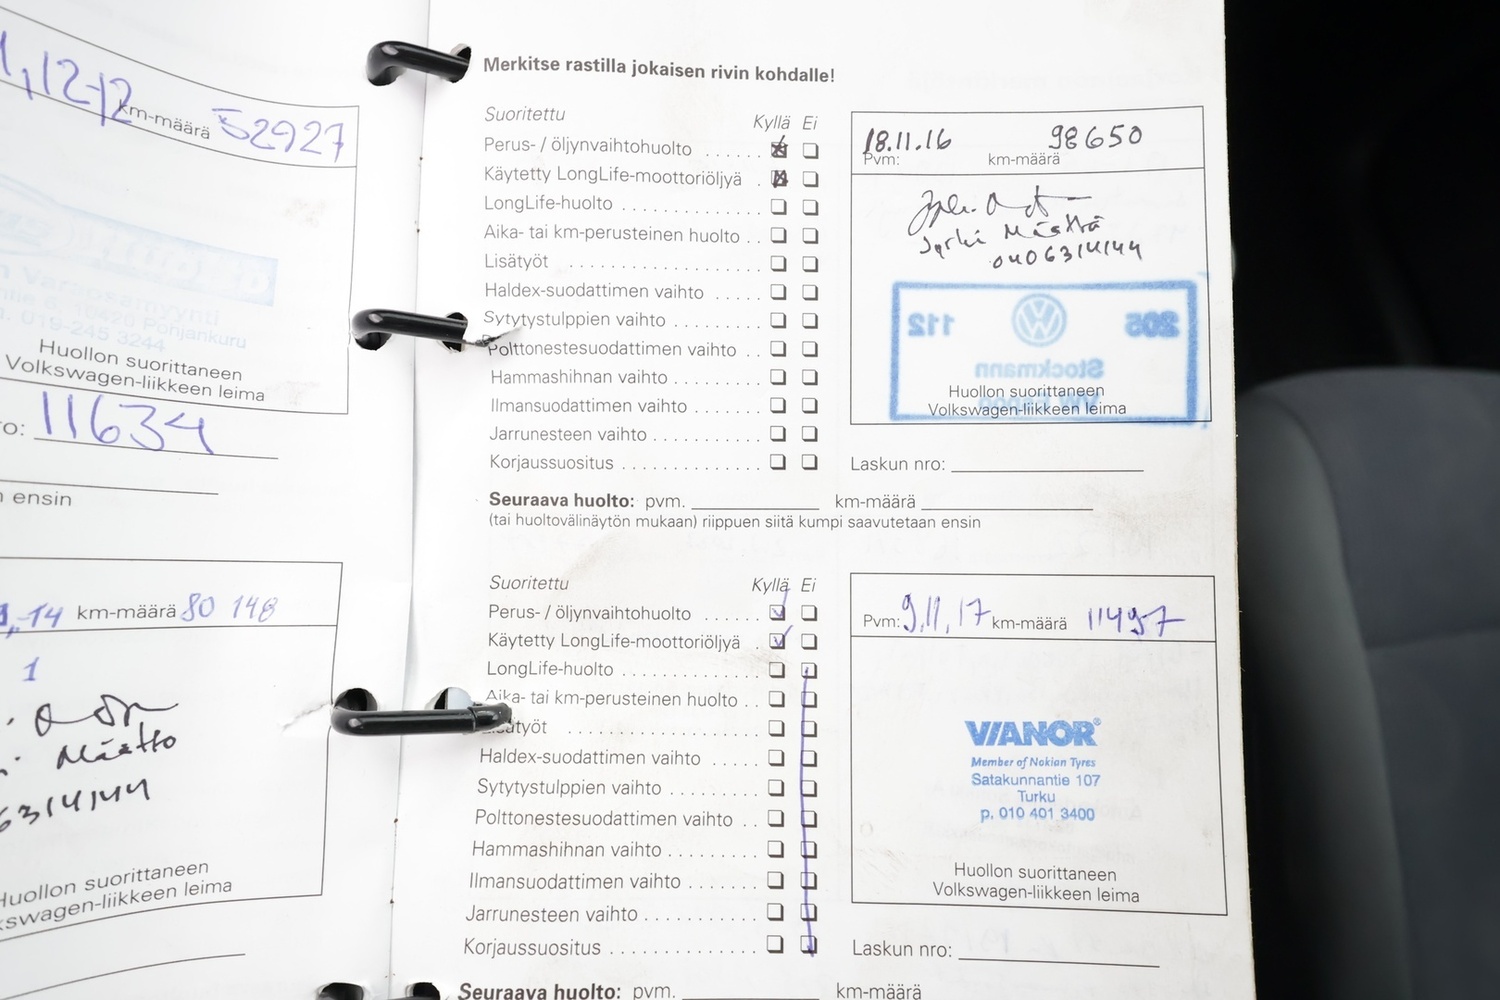 1,12-12 km-määrä 52927
n Varaosamyynti
ntie 6, 10420 Pohjankuru
019-245 3244
Huollon suorittaneen
Volkswagen-liikkeen leima
ro: 11634
n ensin
-14 km-määrä 80 148
1
Määttä
6314144
Huollon suorittaneen
kswagen-liikkeen leima
Merkitse rastilla jokaisen rivin kohdalle!
Suoritettu Kyllä Ei
Perus- / öljynvaihtohuolto
Käytetty LongLife-moottoriöljyä
LongLife-huolto
Aika- tai km-perusteinen huolto
Lisätyöt
Haldex-suodattimen vaihto
Sytytystulppien vaihto
Polttonestesuodattimen vaihto
Hammashihnan vaihto
Ilmansuodattimen vaihto
Jarrunesteen vaihto
Korjaussuositus
18.11.16 98650
Pvm: km-määrä
Jyrki Määttä
0406314144
112 205
Stockmann
Huollon suorittaneen
Volkswagen-liikkeen leima
Laskun nro:
Seuraava huolto: pvm. km-määrä
(tai huoltovälinäytön mukaan) riippuen siitä kumpi saavutetaan ensin
Suoritettu Kyllä Ei
Perus- / öljynvaihtohuolto
Käytetty LongLife-moottoriöljyä
LongLife-huolto
Aika- tai km-perusteinen huolto
Lisätyöt
Haldex-suodattimen vaihto
Sytytystulppien vaihto
Polttonestesuodattimen vaihto
Hammashihnan vaihto
Ilmansuodattimen vaihto
Jarrunesteen vaihto
Korjaussuositus
Pvm: 9,11,17 km-määrä 11497
VIANOR®
Member of Nokian Tyres
Satakunnantie 107
Turku
p. 010 401 3400
Huollon suorittaneen
Volkswagen-liikkeen leima
Laskun nro:
Seuraava huolto: pvm. km-määrä